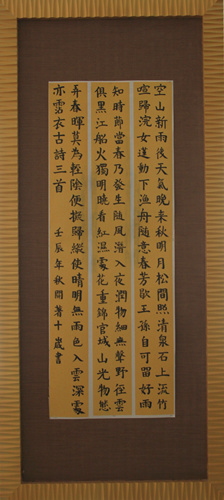 空山新雨後天氣晚来秋明月松間照清泉石上流竹
喧歸浣女蓮動下漁舟随意春芳歇王孫自可留好雨
知時節當春乃發生随風潛入夜潤物細無聲野徑雲
俱黑江船火獨明曉看紅濕處花重錦官城山光物態
弄春暉莫為輕陰便擬歸縱使晴明無雨色入雲深處
亦霑衣古詩三首 壬辰年秋閆著十歲書